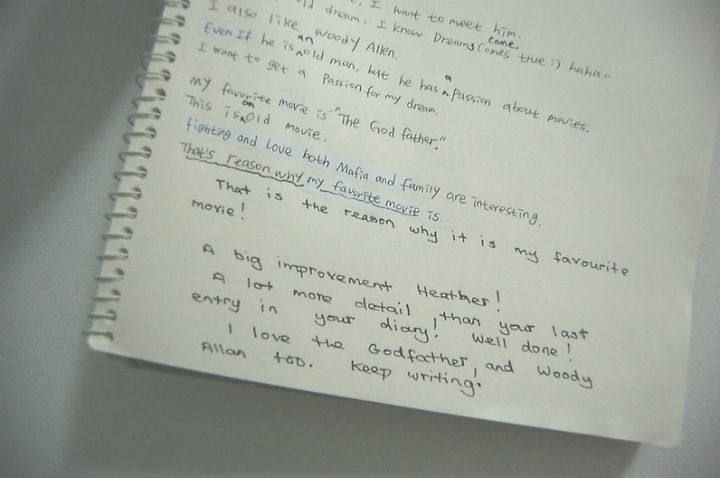 old dream. I want to meet him.
I know Dreams come (omes true :) haha..
I also like an Woody Allen.
Even If he is an old man, but he has a passion about movies.
I want to get a Passion for my dream.
My favorite movie is "The God father."
This is an old movie.
fighting and Love both Mafia and family are interesting.
That's reason why my favorite movie is.
That is the reason why it is my favourite
movie!
A big improvement Heather!
A lot more detail than your last
entry in your diary! Well done!
I love the Godfather, and Woody
Allan too. Keep writing.